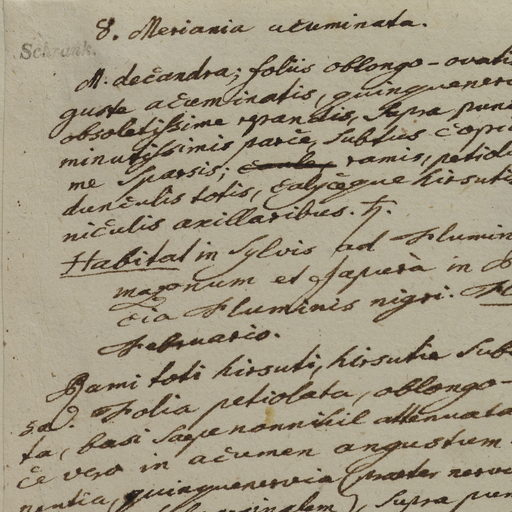 8. Meriania acuminata.
Schrank.
M. decandra; foliis oblongo-ovatis
guste acuminatis, quinquenerv
obsoletissime repandis, supra punc
minutissimis parce, subtus copio
me sparsis; caule ramis, petiol
dunculis totis, calyceque hirsutis
niculis axillaribus. ♄.
Habitat in sylvis ad Flumin
magnum et Japurà in
cia Fluminis nigri.
Februario.
Rami toti hirsuti, hirsutie sub
Folia petiolata, oblongo-
ta, basi saepe nonnihil attenuata
ce vero in acumen angustum
nentia, quinquenervia (praeter nerv
supra pun